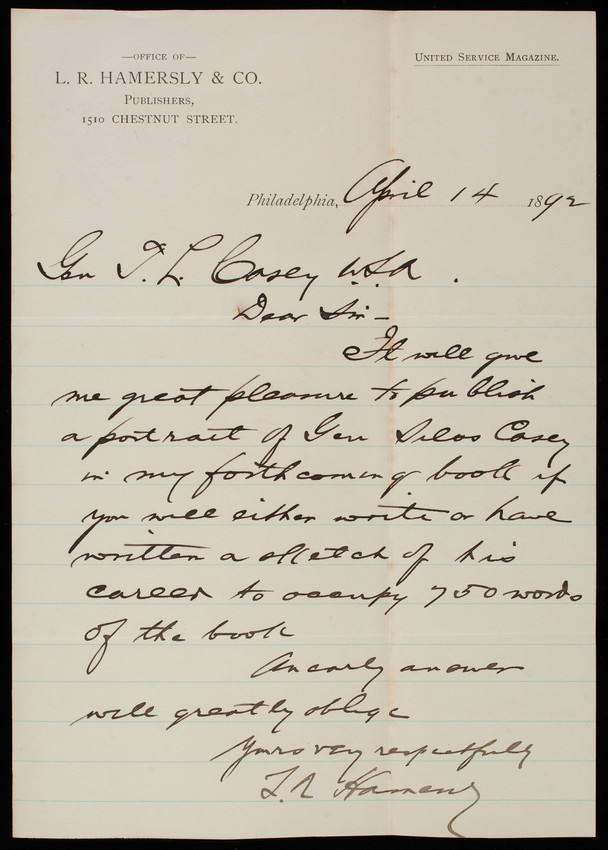 —OFFICE OF—
L. R. HAMERSLY & CO.
PUBLISHERS,
1510 CHESTNUT STREET.
UNITED SERVICE MAGAZINE.
Philadelphia, April 14 1892
Gen T. L. Casey U.S.A.
Dear Sir—
It will give
me great pleasure to publish
a portrait of Gen Silas Casey
in my forthcoming book if
you will either write or have
written a sketch of his
career to occupy 750 words
of the book
An early answer
will greatly oblige
Yours very respectfully
L. R. Hamersly